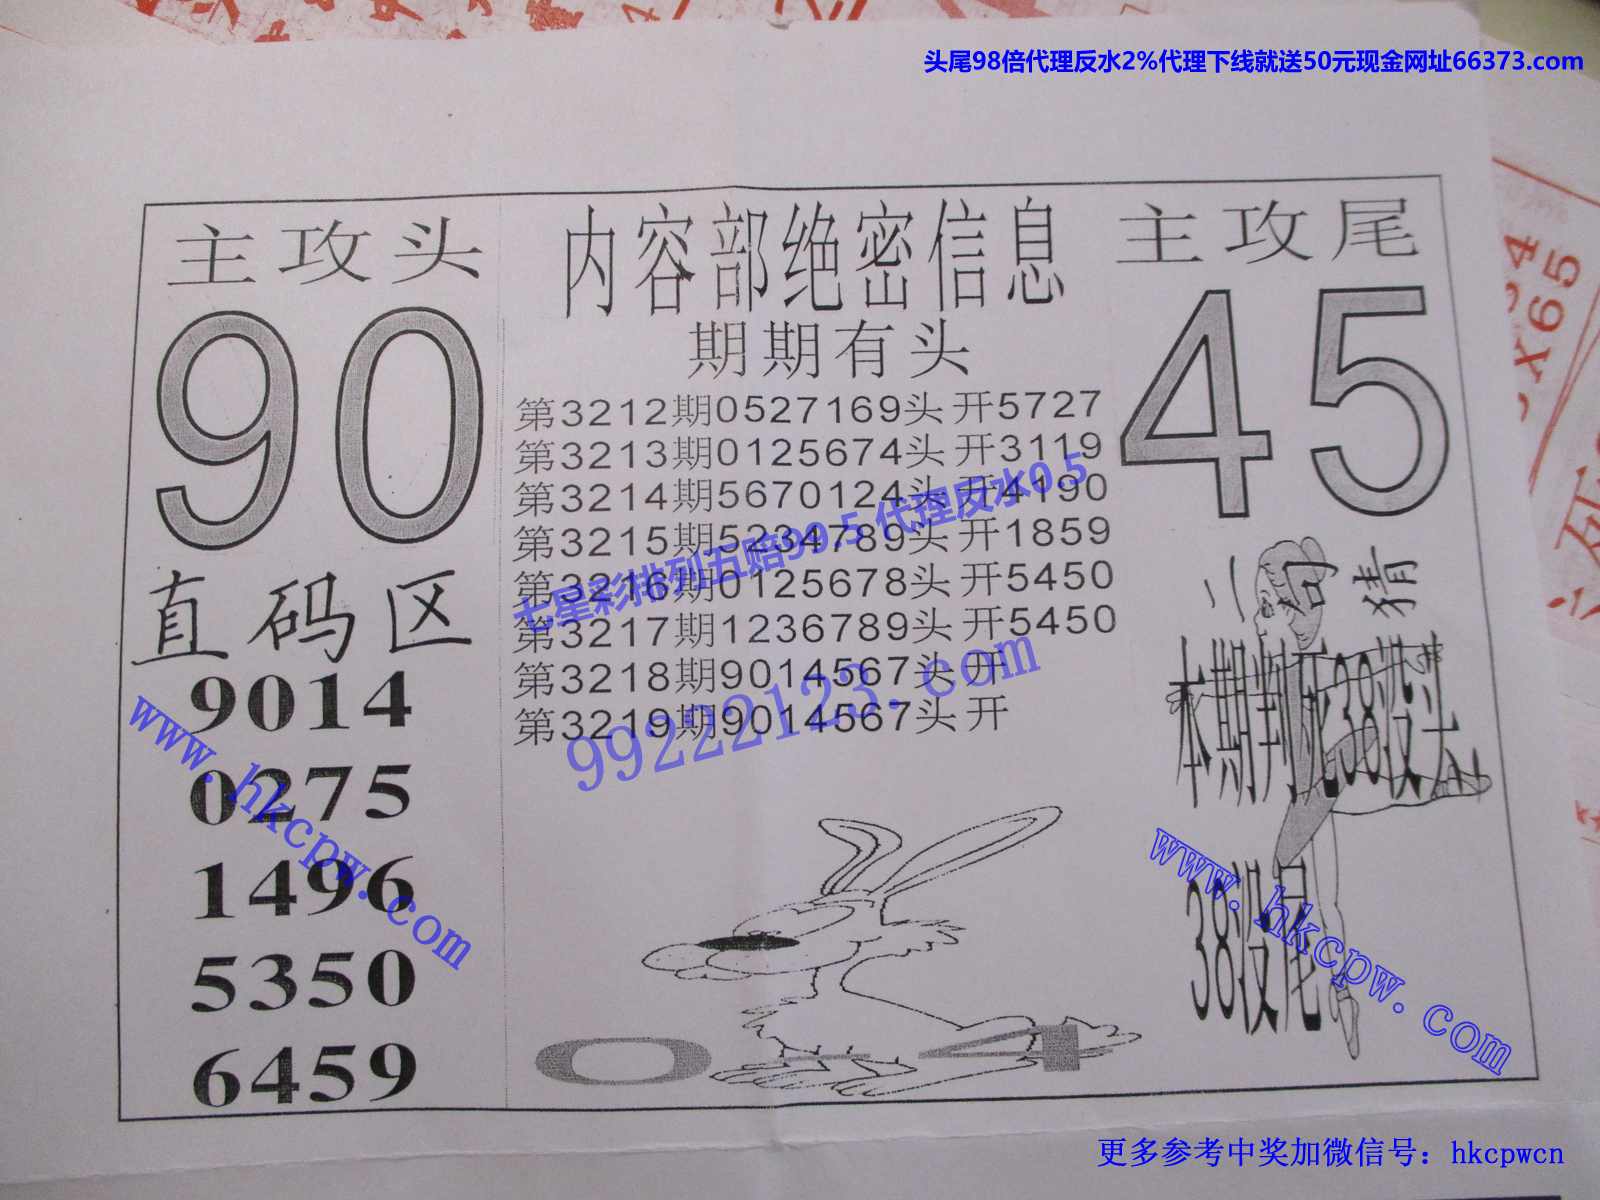 头尾98倍代理反水2%代理下线就送50元现金网址66373.com
主攻头
90
直码区
9014
0275
1496
5350
6459
内容部绝密信息
期期有头
第3212期0527169头 开5727
第3213期0125674头 开3119
第3214期5670124头 开4190
第3215期5234789头 开1859
第3216期0125678头 开5450
第3217期1236789头 开5450
第3218期9014567头 开
第3219期9014567头 开
七星彩排列五赔99.5 代理反水0.5
99222123.com
0 4
主攻尾
45
二句猜
本期判死38没头
38没尾
www.hkcpw.com
www.hkcpw.com
更多参考中奖加微信号：hkcpwcn